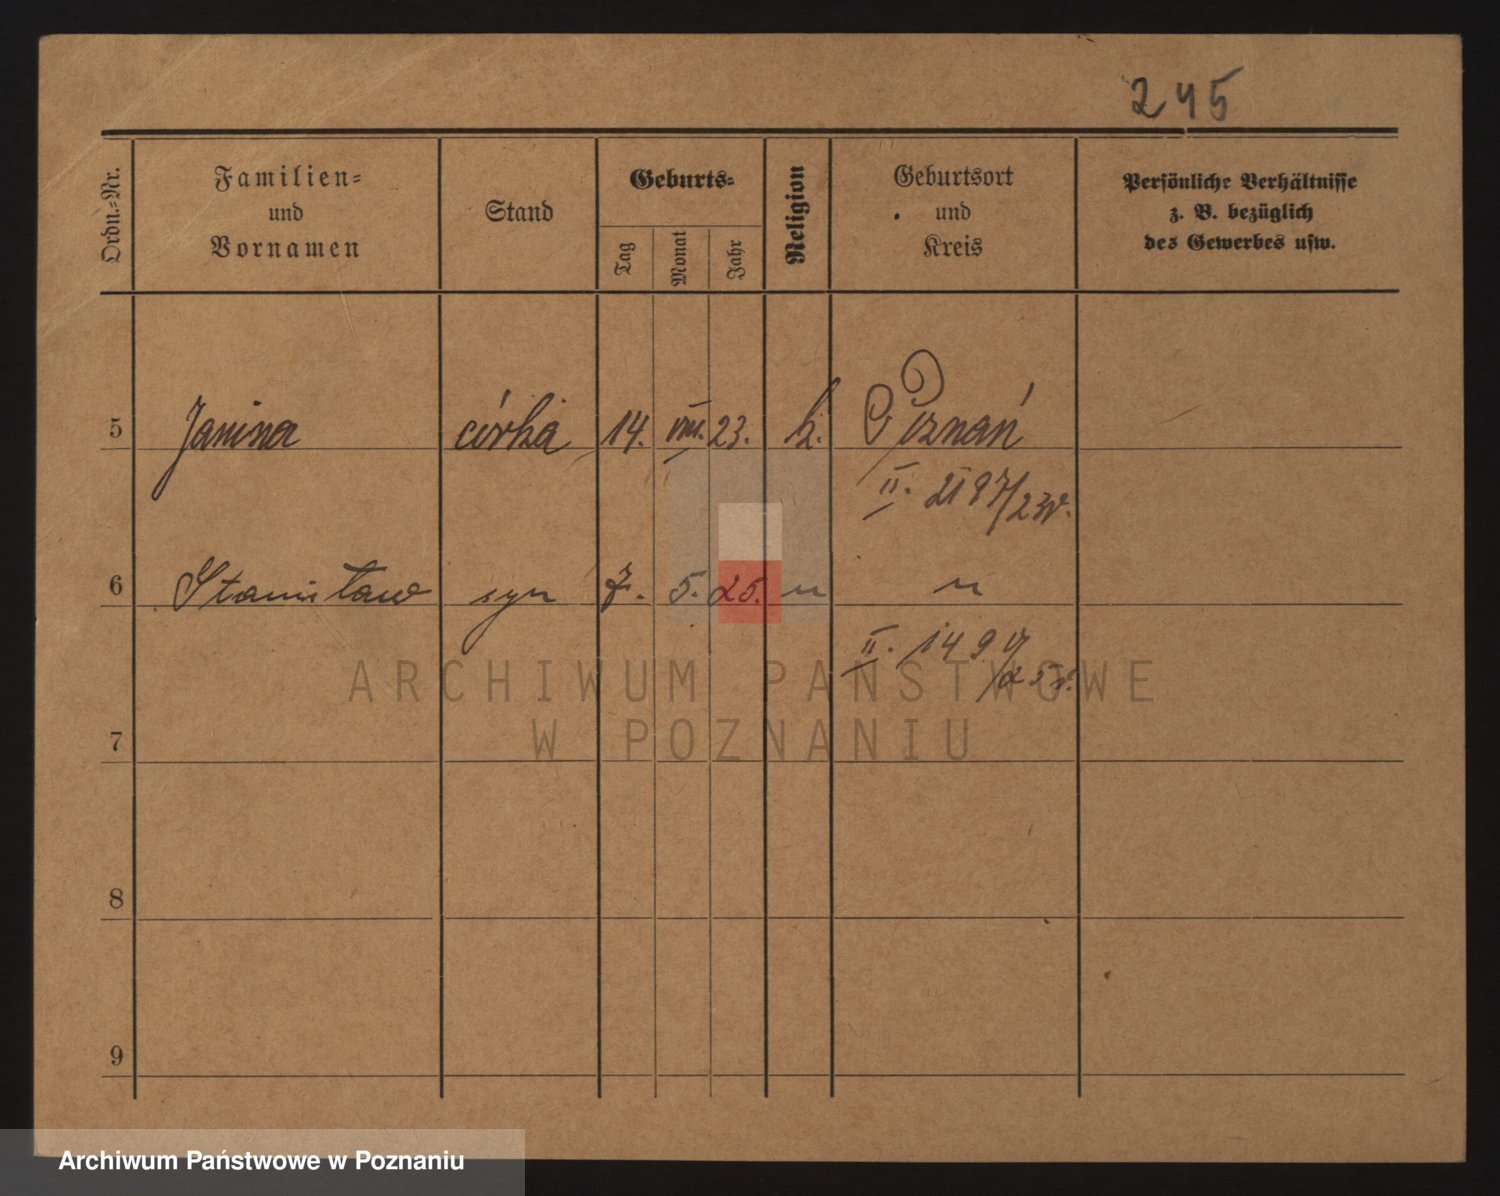 245
Ordn.-Nr.
Familien-
und
Vornamen
Stand
Geburts-
Tag
Monat
Jahr
Religion
Geburtsort
und
Kreis
Persönliche Verhältnisse
z. B. bezüglich
des Gewerbes usw.
5 Janina córka 14. VIII. 23. k. Poznań
II. 2187/23
6 Stanisław syn 7. 5. 25. " "
II. 1497/25
7
8
9
ARCHIWUM PAŃSTWOWE
W POZNANIU
Archiwum Państwowe w Poznaniu